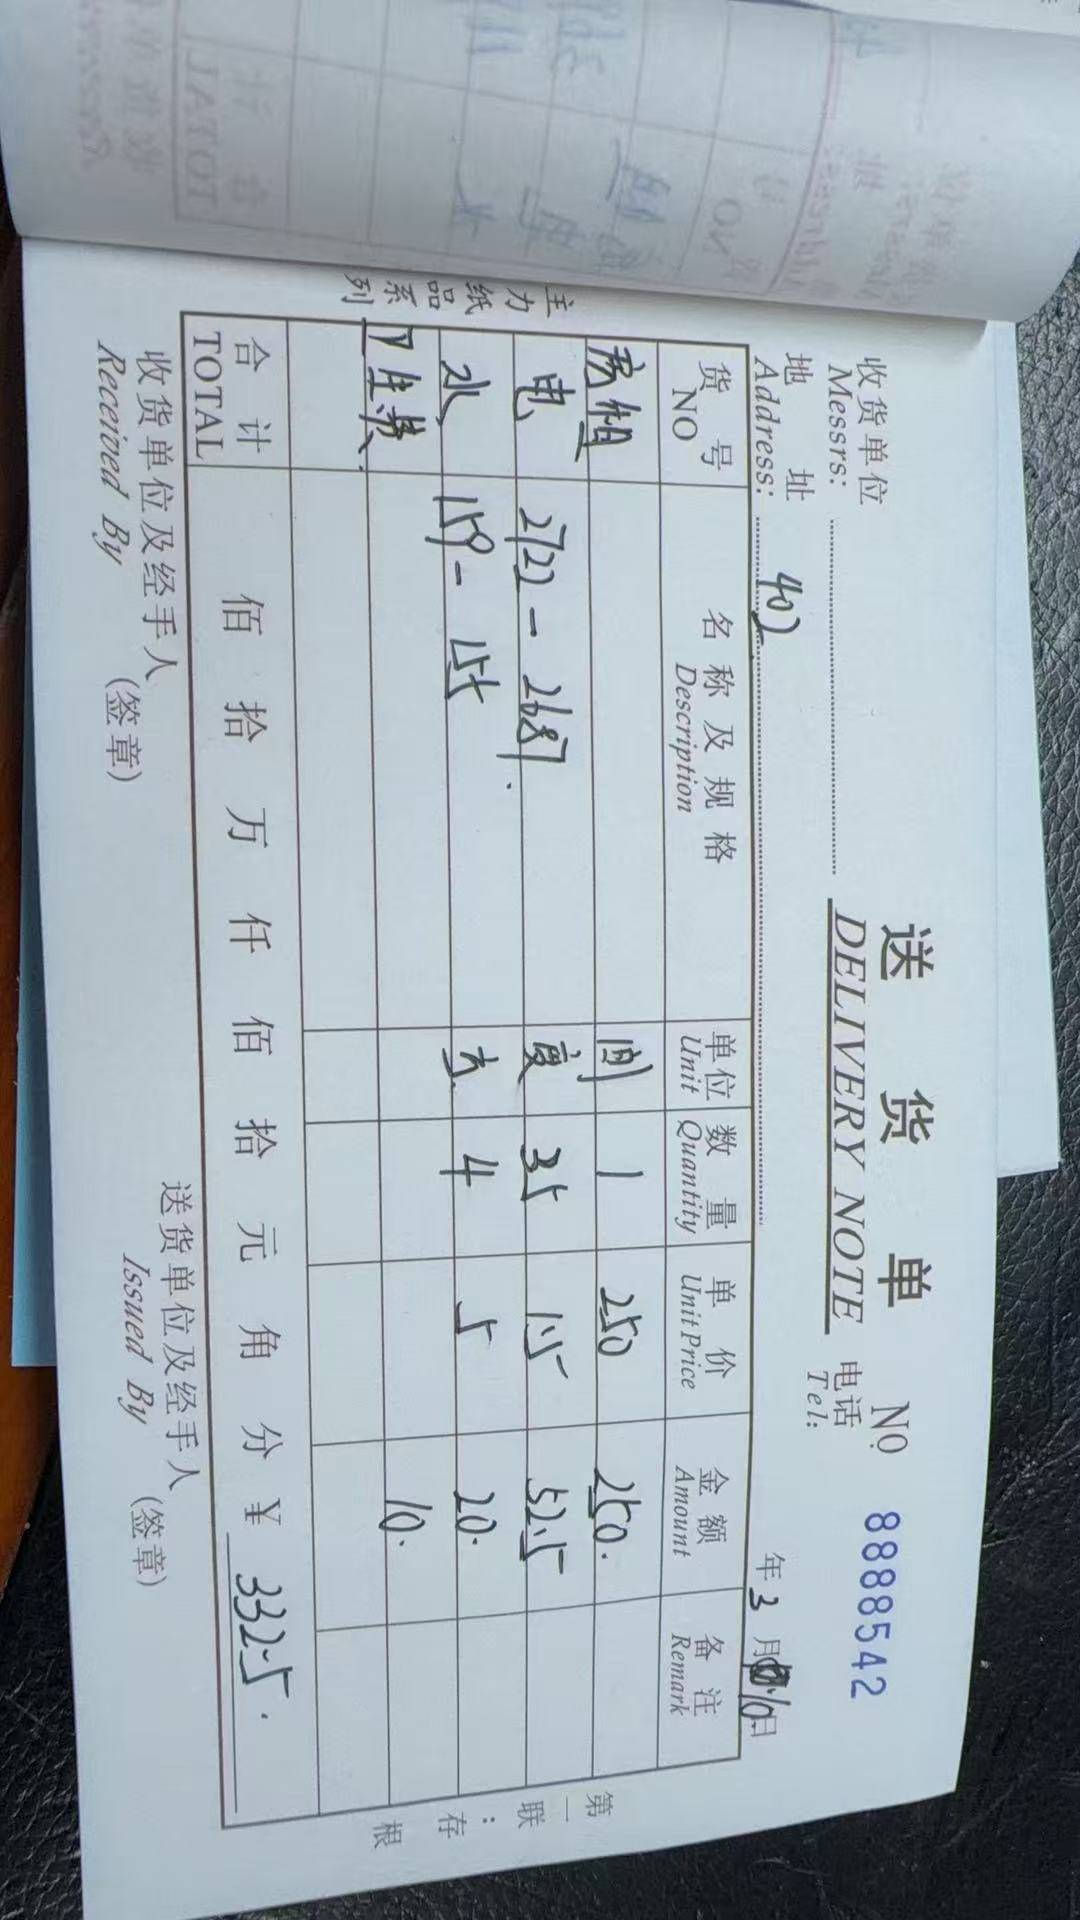 送 货 单
DELIVERY NOTE
№ 8888542
收货单位
Messrs:
电话
Tel:
地 址
Address: 402
年 3 月 10 日
货 号 名 称 及 规 格 单位 数 量 单 价 金 额 备 注
NO Description Unit Quantity Unit Price Amount Remark
房租 间 1 250 250.
电 2722 - 2687. 度 35 1.5 52.5
水 159 - 155 方 4 5 20.
卫生费 10.
合 计 佰 拾 万 仟 佰 拾 元 角 分 ¥ 332.5.
TOTAL
收货单位及经手人 (签章)
Received By
送货单位及经手人 (签章)
Issued By
主力纸品系列
第一联：存根
TOTAL